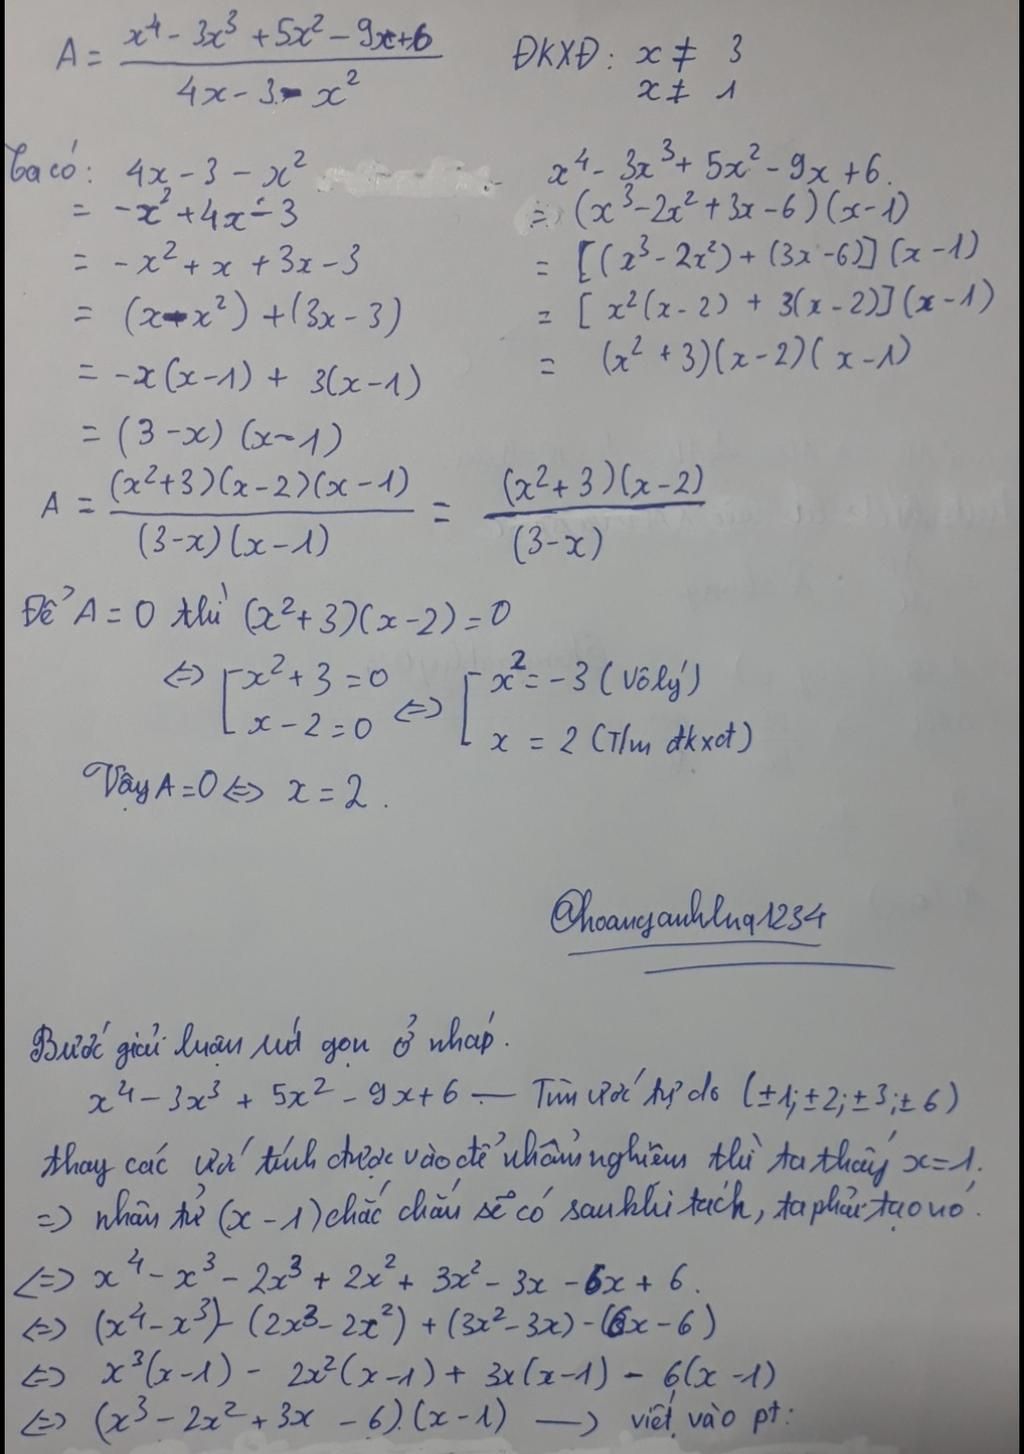 A = (x⁴ - 3x³ + 5x² - 9x + 6) / (4x - 3 - x²) ĐKXĐ: x ≠ 3
x ≠ 1
Ta có: 4x - 3 - x²
= -x² + 4x - 3
= -x² + x + 3x - 3
= (x - x²) + (3x - 3)
= -x(x - 1) + 3(x - 1)
= (3 - x)(x - 1)
x⁴ - 3x³ + 5x² - 9x + 6.
= (x³ - 2x² + 3x - 6)(x - 1)
= [(x³ - 2x²) + (3x - 6)](x - 1)
= [x²(x - 2) + 3(x - 2)](x - 1)
= (x² + 3)(x - 2)(x - 1)
A = (x² + 3)(x - 2)(x - 1) / (3 - x)(x - 1) = (x² + 3)(x - 2) / (3 - x)
Để A = 0 thì (x² + 3)(x - 2) = 0
⇔ [ x² + 3 = 0 ⇔ [ x² = -3 (Vô lý)
x - 2 = 0 x = 2 (T/m đkxđ)
Vậy A = 0 ⇔ x = 2.
@hoanganhlnq1234
Bước giải luận rút gọn ở nháp.
x⁴ - 3x³ + 5x² - 9x + 6 — Tìm ước tự do (±1; ±2; ±3; ±6)
thay các ước tính được vào để nhẩm nghiệm thì ta thấy x = 1.
=> nhân tử (x - 1) chắc chắn sẽ có sau khi tách, ta phải tạo nó.
⇔ x⁴ - x³ - 2x³ + 2x² + 3x² - 3x - 6x + 6.
⇔ (x⁴ - x³) - (2x³ - 2x²) + (3x² - 3x) - (6x - 6)
⇔ x³(x - 1) - 2x²(x - 1) + 3x(x - 1) - 6(x - 1)
⇔ (x³ - 2x² + 3x - 6).(x - 1) → viết vào pt: